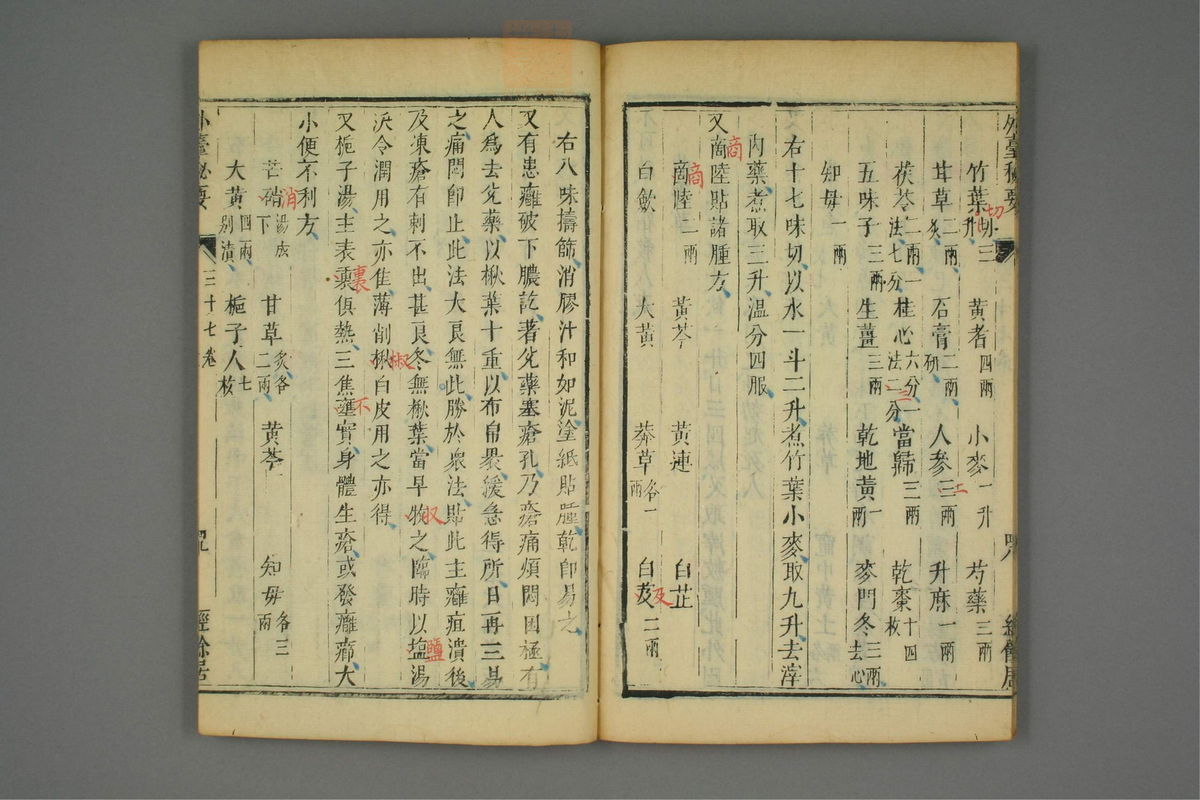 外臺秘要
竹葉切三升 黃者四兩 小麥一升 芍藥三兩
甘草二兩炙 石膏二兩研 人參三兩 升麻一兩
茯苓二兩一法七分 桂心六分一法二分 當歸二兩 乾棗十四枚
五味子三兩 生薑三兩 乾地黃一兩 麥門冬三兩去心
知母一兩
右十七味切以水一斗二升煮竹葉小麥取九升去滓
內藥煮取三升溫分四服
又啇陸貼諸腫方
啇陸二兩 黃芩 黃連 白芷
白歛 大黃 莽草各一兩 白芨二兩
右八味擣篩消膠汁和如泥塗紙貼腫乾即易之
又有患癰破下膿訖著兊藥塞瘡孔乃瘡痛煩悶困極有
人爲去兊藥以楸葉十重以布帛裹緩急得所日再三易
之痛悶即止此法大良無此勝於衆法貼此主癰疽潰後
及凍瘡有刺不出甚良冬無楸葉當早物之臨時以塩湯
浂令潤用之亦隹薄削楸白皮用之亦得
又梔子湯主表裏俱熱三焦壅實身體生瘡或發癰癤大
小便不利方
芒硝湯成下 甘草二兩炙各 黃芩 知母各三兩
大黃四兩別漬 梔子人七枚
外臺秘要
三十七卷
罒九
經餘居
切
商
商
及
裏
不
椒
収
鹽
消